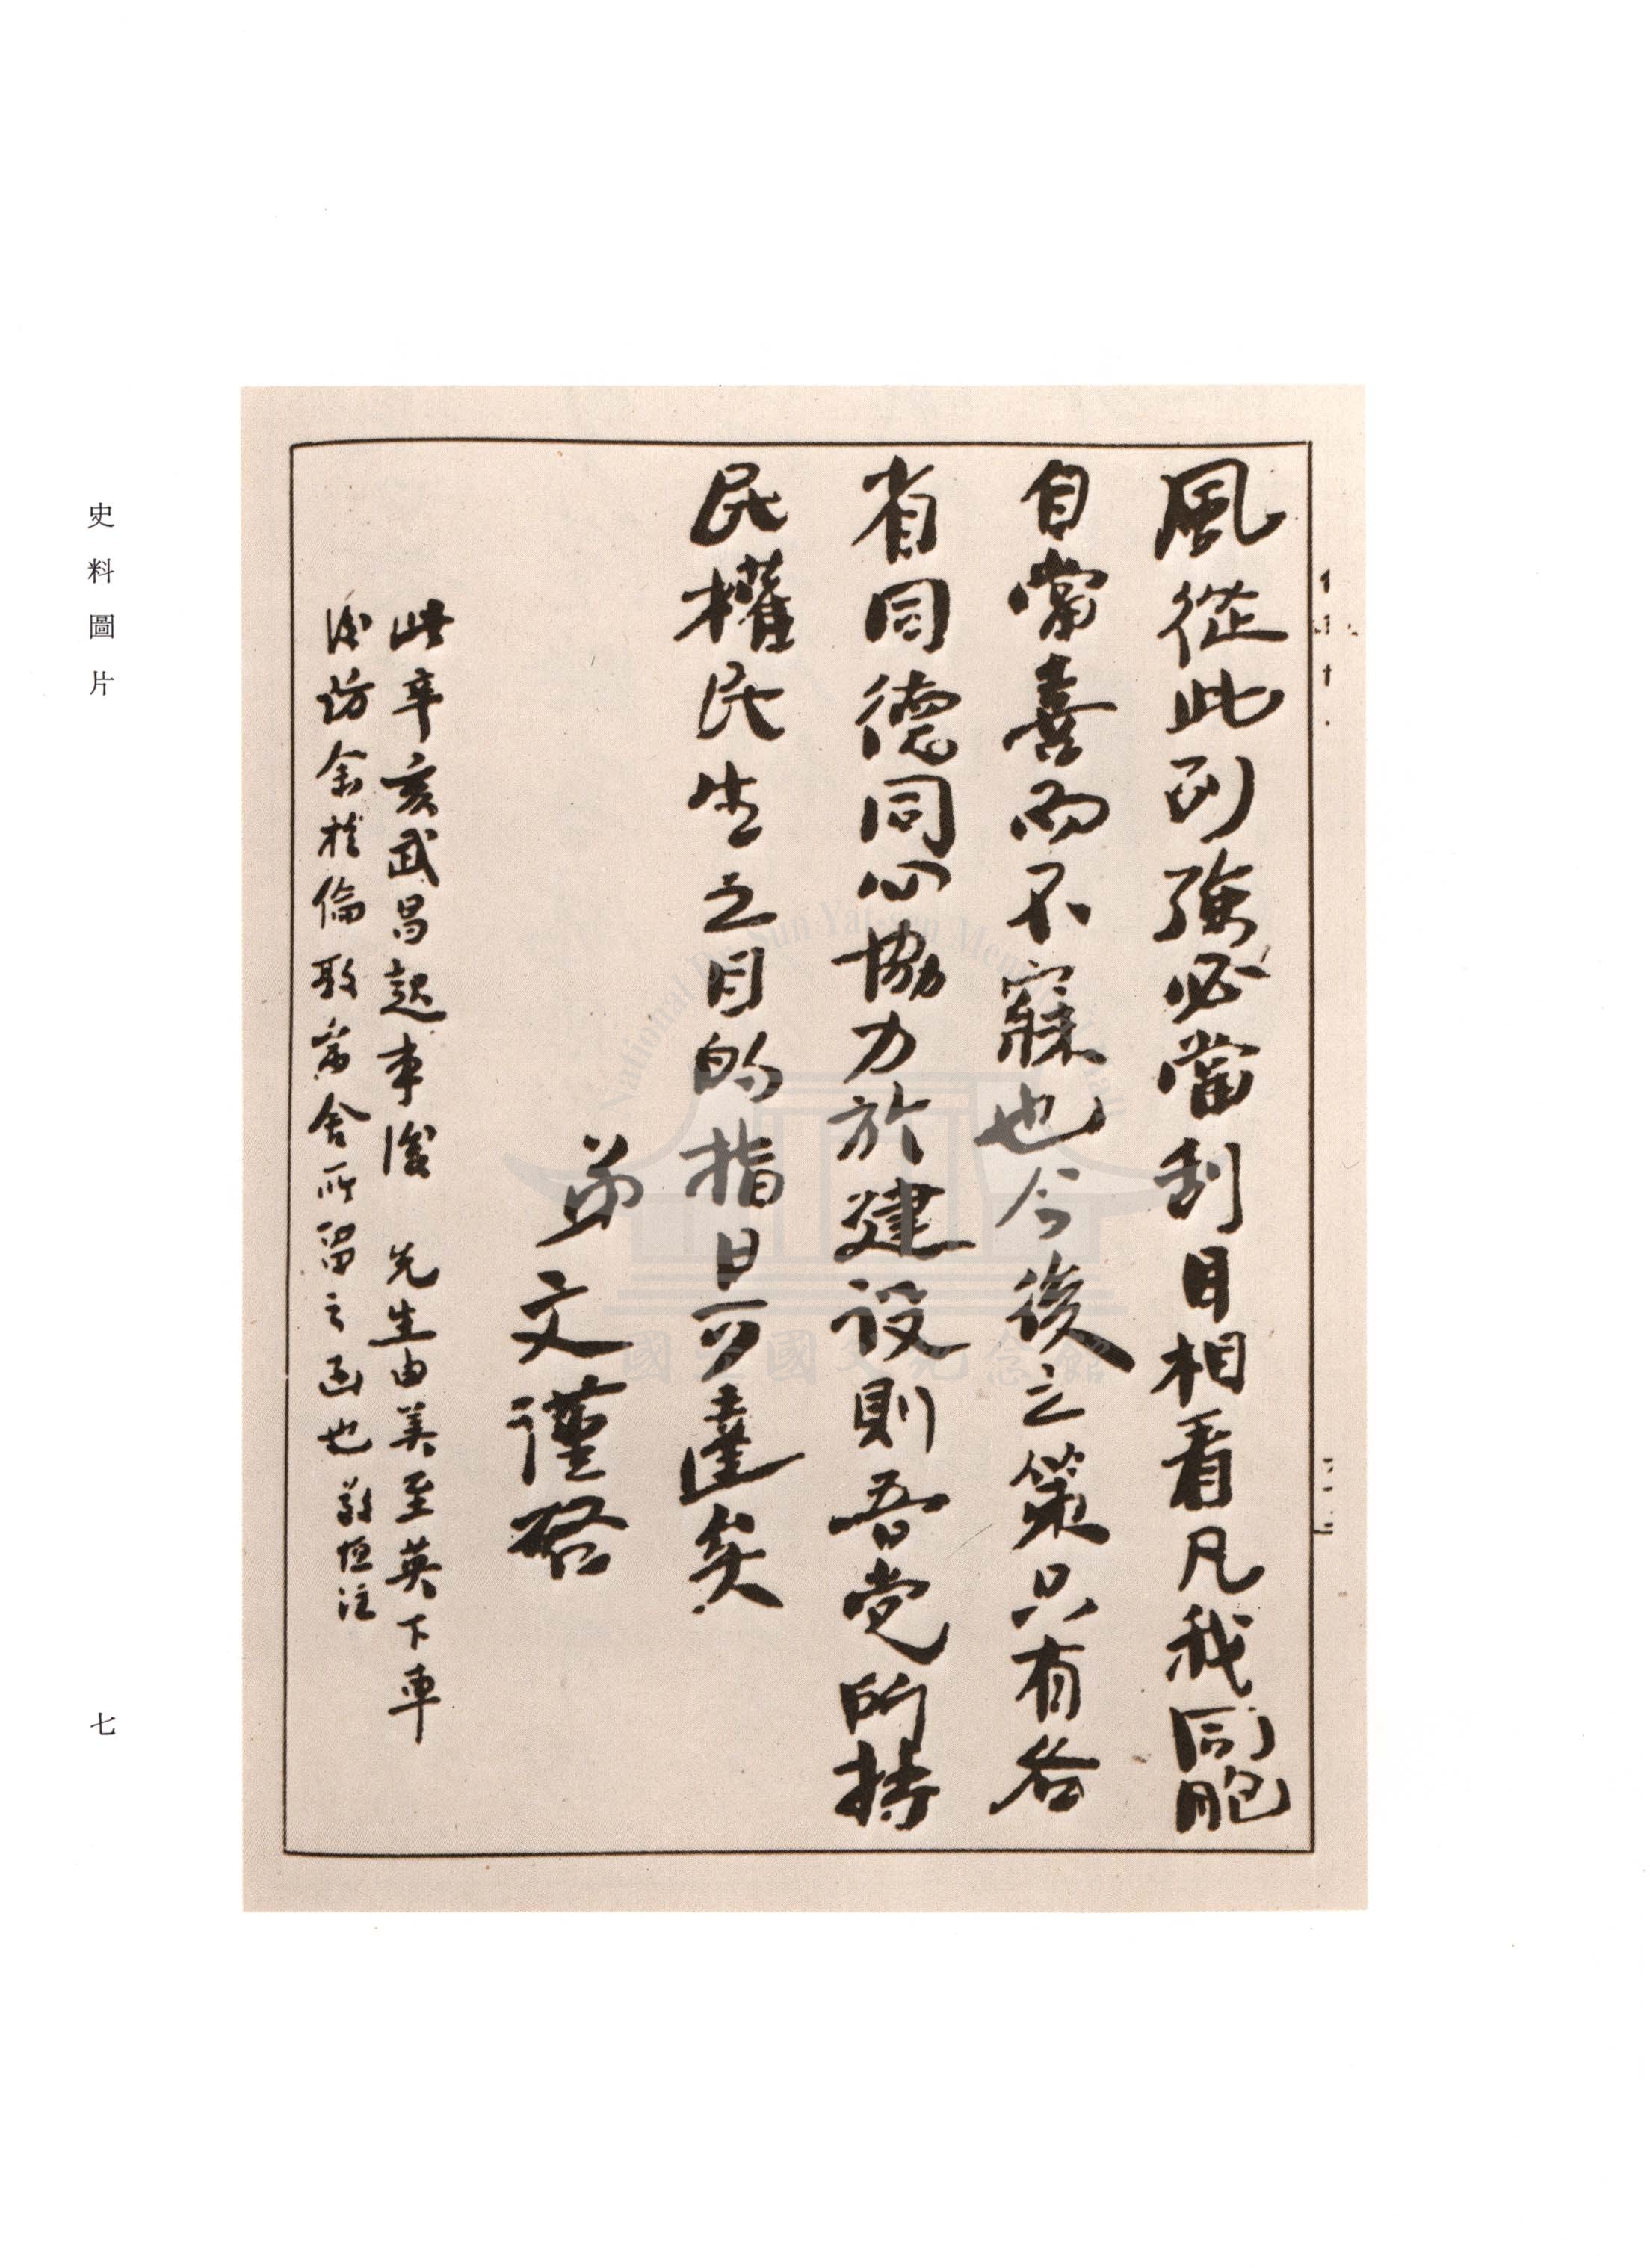 風從此列強必當刮目相看凡我同胞
自當喜而不寐也今後之策只有各
省同德同心協力於建設則吾党所持
民權民生之目的指日可達矣
弟文謹啓
此辛亥武昌起事後 先生由美至英下車
後訪余於倫敦寓舍所留之函也敬恒注
史料圖片
七
National Dr. Sun Yat-sen Memorial Hall
國立國父紀念館